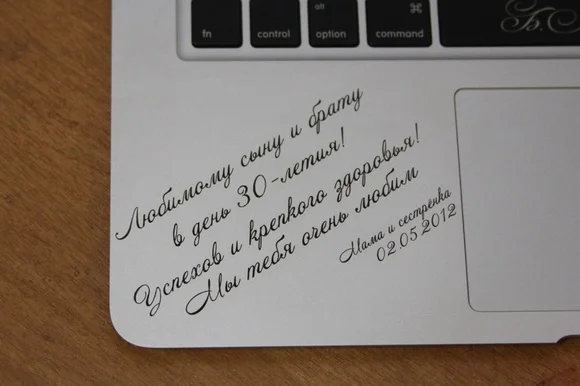 alt
⌘
Б.С
fn
control
option
command
Любимому сыну и брату
в день 30-летия!
Успехов и крепкого здоровья!
Мы тебя очень любим
Мама и сестрёнка
02.05.2012